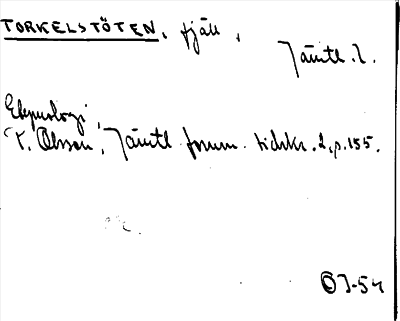 TORKELSTÖTEN, fjäll,
Jämtl. l.
Etymologi,
T. Olsson, Jämtl. fornm. tidskr. 2, p. 155.
OJ-54